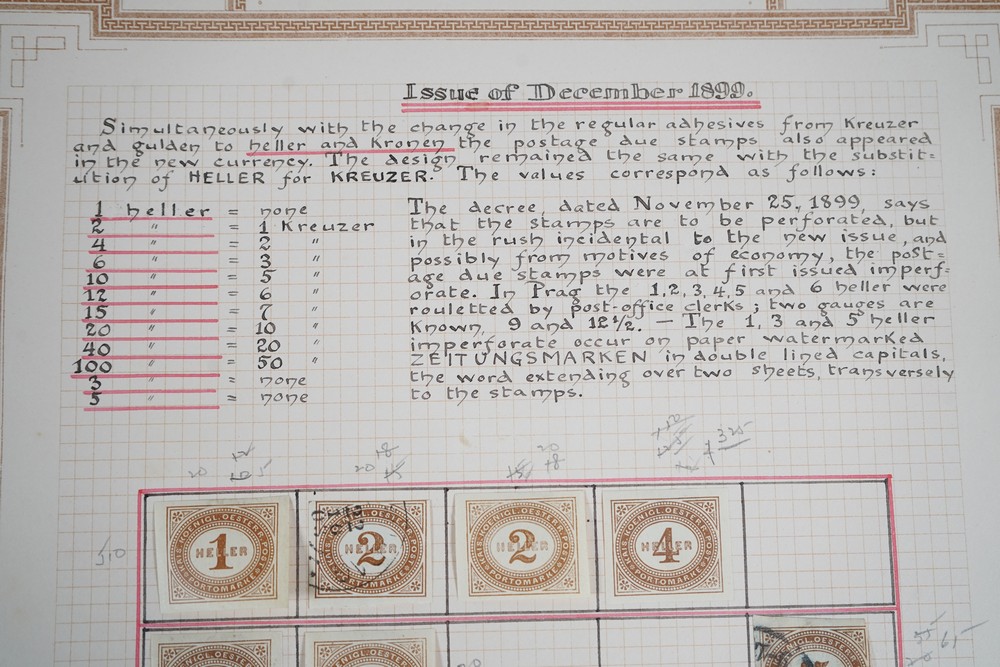 Issue of December 1899.
Simultaneously with the change in the regular adhesives from Kreuzer
and gulden to heller and Kronen the postage due stamps also appeared
in the new currency. The design remained the same with the substit=
ution of HELLER for KREUZER. The values correspond as follows:
1 heller = none
2 " = 1 Kreuzer
4 " = 2 "
6 " = 3 "
10 " = 5 "
12 " = 6 "
15 " = 7 "
20 " = 10 "
40 " = 20 "
100 " = 50 "
3 " = none
5 " = none
The decree, dated November 25, 1899, says
that the stamps are to be perforated, but
in the rush incidental to the new issue, and
possibly from motives of economy, the post=
age due stamps were at first issued imperf=
orate. In Prag the 1,2,3,4,5 and 6 heller were
rouletted by post-office clerks; two gauges are
known, 9 and 12½. — The 1, 3 and 5 heller
imperforate occur on paper watermarked
ZEITUNGSMARKEN in double lined capitals,
the word extending over two sheets, transversely
to the stamps.
20
5
20
20
325
510
KAIS. KOENIGL. OESTERR. POST
1
HELLER
PORTOMARKE
KAIS. KOENIGL. OESTERR. POST
2
HELLER
PORTOMARKE
KAIS. KOENIGL. OESTERR. POST
2
HELLER
PORTOMARKE
KAIS. KOENIGL. OESTERR. POST
4
HELLER
PORTOMARKE
65
KOENIGL. OESTERR.
KOENIGL. OESTERR.
KOENIGL. OESTERR.